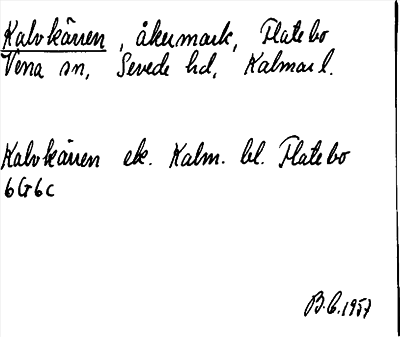 Kalvkärren, åkermark, Flatebo
Vena sn, Sevede hd, Kalmar l.
Kalvkärren ek. Kalm. bl. Flatebo
6G6c
B.C. 1957